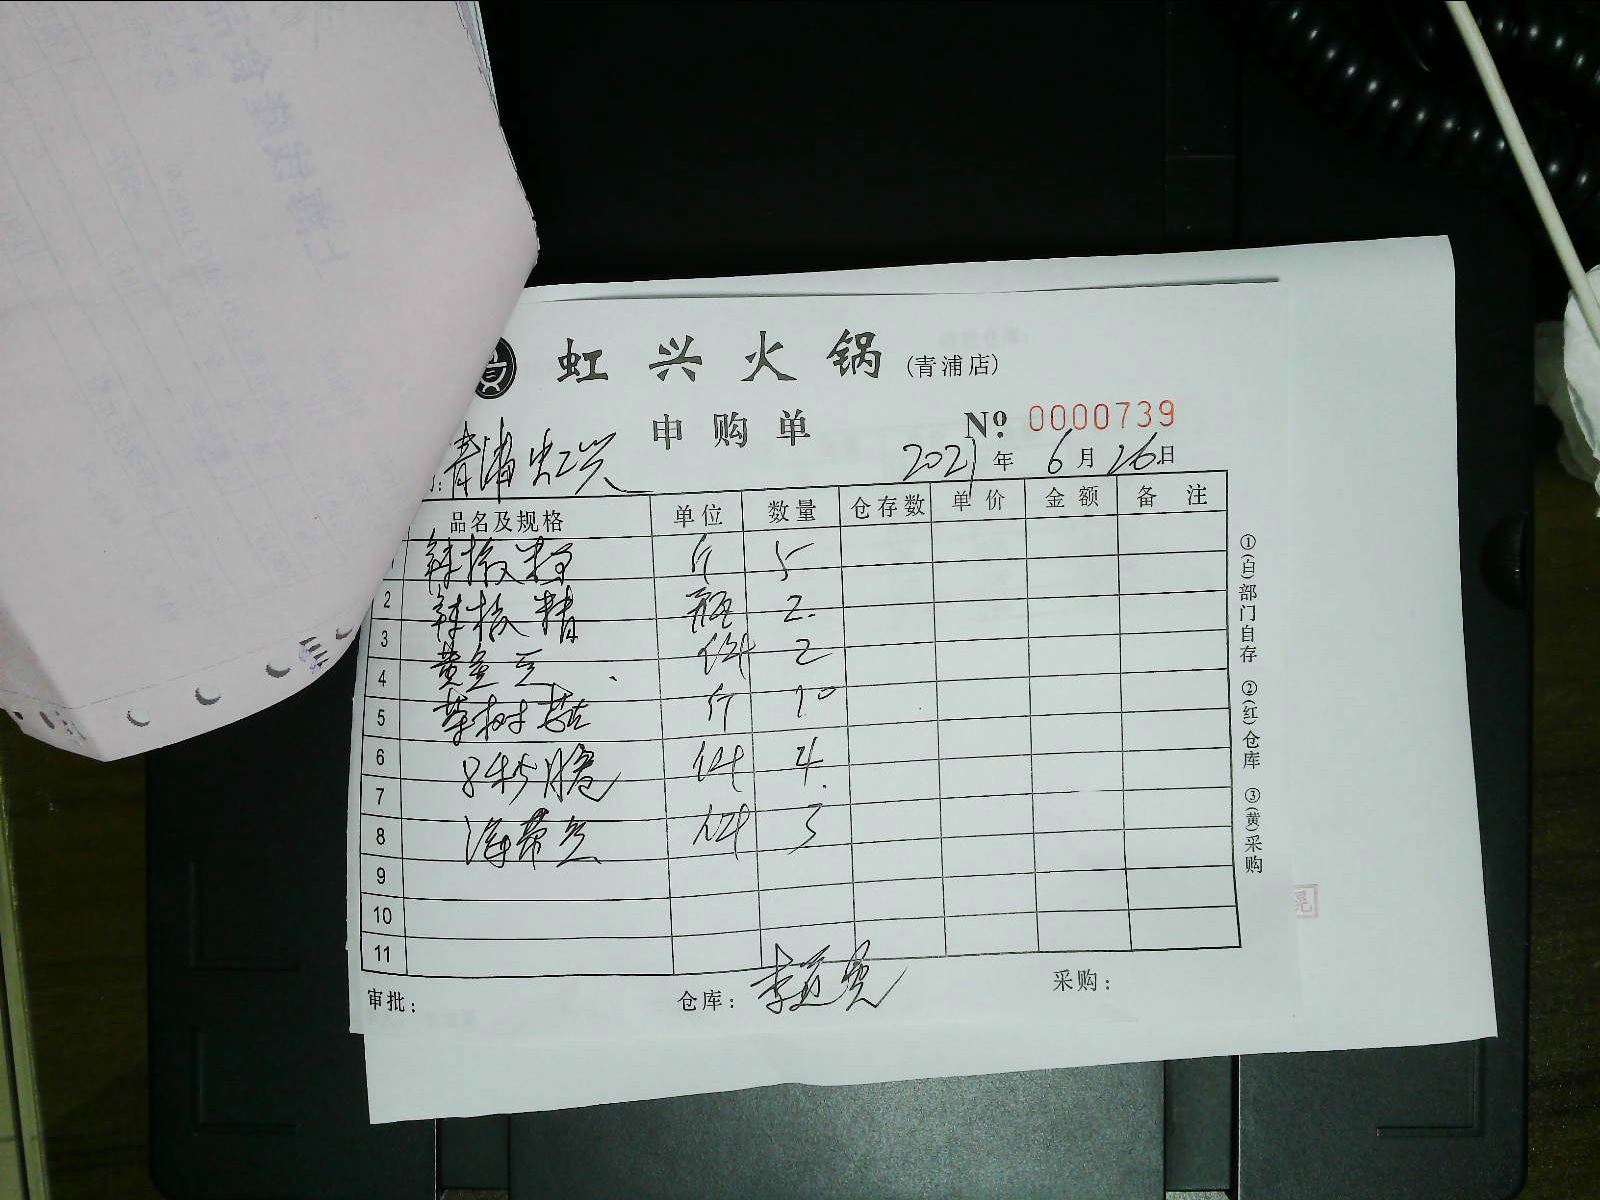 虹兴火锅(青浦店)
申购单 Nº: 0000739
青浦虹兴 2021年6月26日
品名及规格 单位 数量 仓存数 单价 金额 备注
辣椒粉 斤 5
2 辣椒精 瓶 2
3 黄金豆 件 2
4 茶树菇 斤 10
5
6 件 4
7
8 海带丝 件 3
9
10
11
审批: 仓库: 采购:
①(白)部门自存 ②(红)仓库 ③(黄)采购